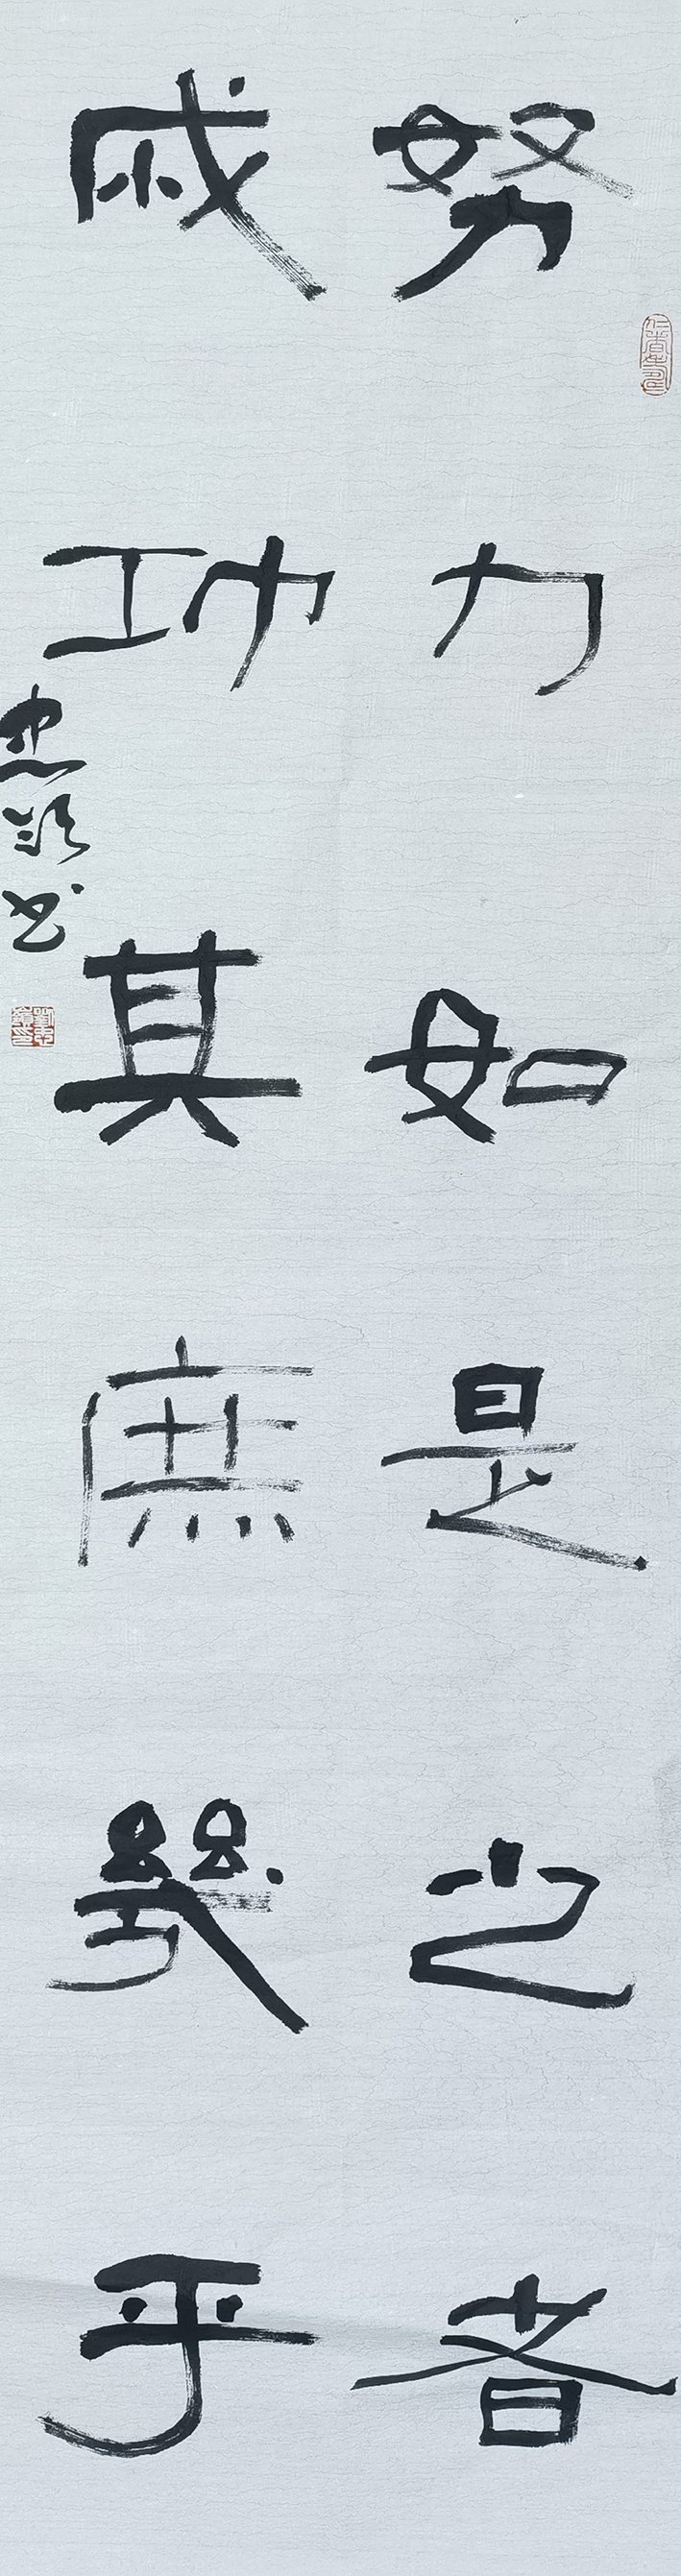 努力如是之者
成功其庶幾乎
忠 书